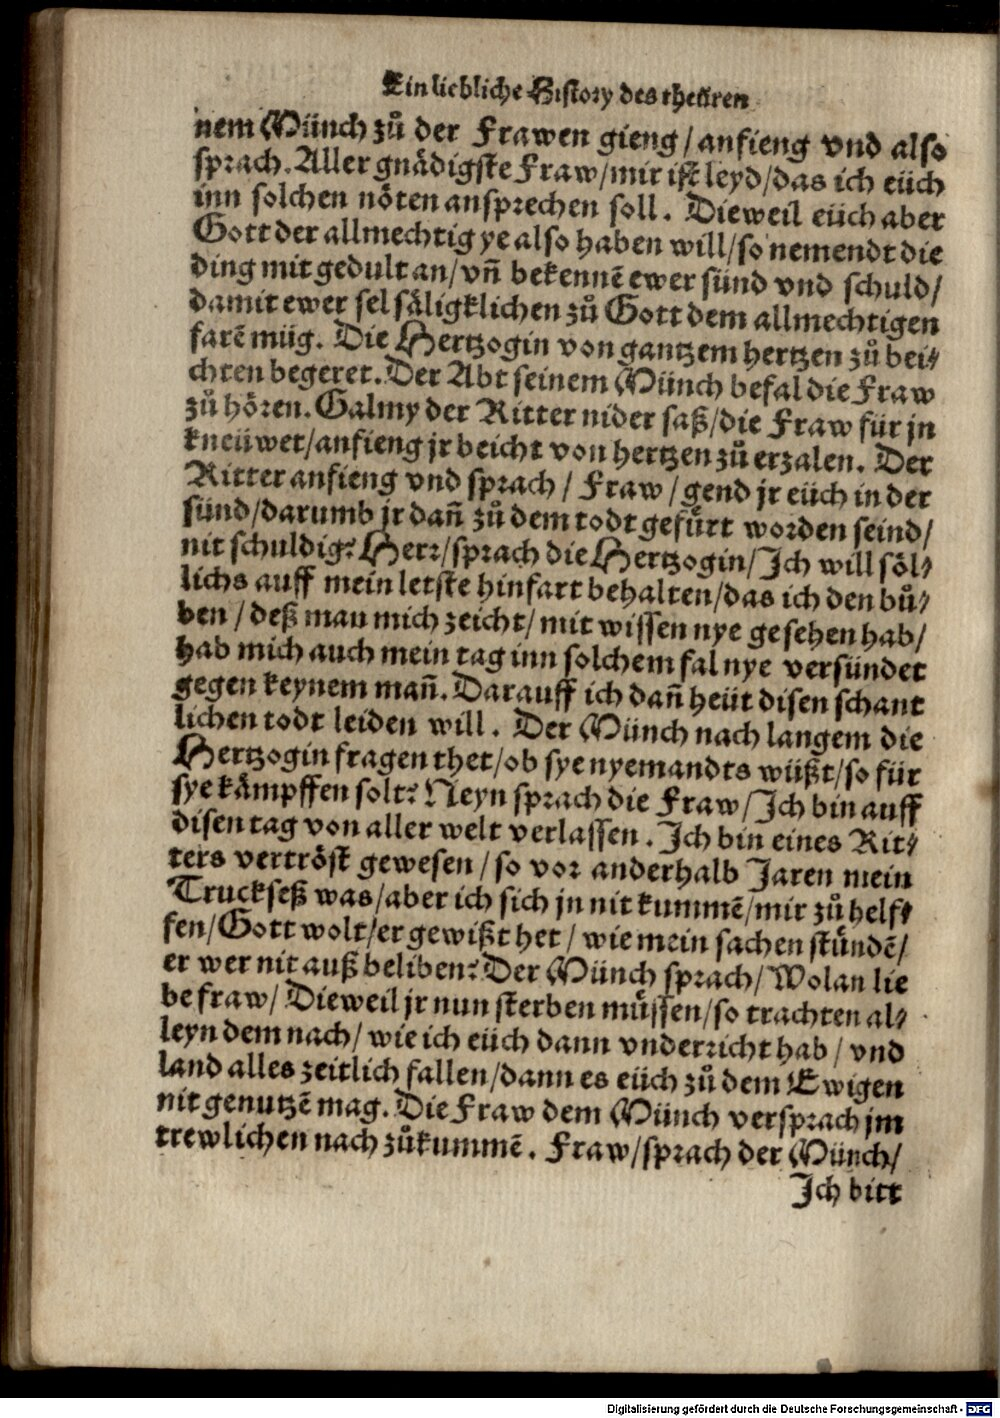 Ein liebliche History des theüren
nem Münch zů der Frawen gieng / anfieng vnd also
sprach. Aller gnädigste Fraw / mir ist leyd / das ich eüch
inn solchen nöten ansprechen soll. Dieweil eüch aber
Gott der allmechtig ye also haben will / so nemendt die
ding mit gedult an / vñ bekennẽ ewer sünd vnd schuld /
damit ewer sel säligklichen zů Gott dem allmechtigen
farẽ müg. Die Hertzogin von gantzem hertzen zů bei⸗
chten begeret. Der Abt seinem Münch befal die Fraw
zů hören. Galmy der Ritter nider saß / die Fraw für jn
kneüwet / anfieng jr beicht von hertzen zů erzalen. Der
Ritter anfieng vnd sprach / Fraw / gend jr eüch in der
sünd / darumb jr dañ zů dem todt gefürt worden seind /
nit schuldig? Herr / sprach die Hertzogin / Ich will söl⸗
lichs auff mein letste hinfart behalten / das ich den bů⸗
ben / deß man mich zeicht / mit wissen nye gesehen hab /
hab mich auch mein tag inn solchem fal nye versündet
gegen keynem mañ. Darauff ich dañ heüt disen schant
lichen todt leiden will. Der Münch nach langem die
Hertzogin fragen thet / ob sye nyemandts wüßt / so für
sye kämpffen solt? Neyn sprach die Fraw / Ich bin auff
disen tag von aller welt verlassen. Ich bin eines Rit⸗
ters vertröst gewesen / so vor anderhalb Jaren mein
Truckseß was / aber ich sich jn nit kummẽ / mir zů helf⸗
fen / Gott wolt / er gewißt het / wie mein sachen stündẽ /
er wer nit auß beliben? Der Münch sprach / Wolan lie
be fraw / Dieweil jr nun sterben müssen / so trachten al⸗
leyn dem nach / wie ich eüch dann vnderricht hab / vnd
land alles zeitlich fallen / dann es eüch zů dem Ewigen
nit genutzẽ mag. Die Fraw dem Münch versprach jm
trewlichen nach zůkummẽ. Fraw / sprach der Münch /
Ich bitt
Digitalisierung gefördert durch die Deutsche Forschungsgemeinschaft - DFG